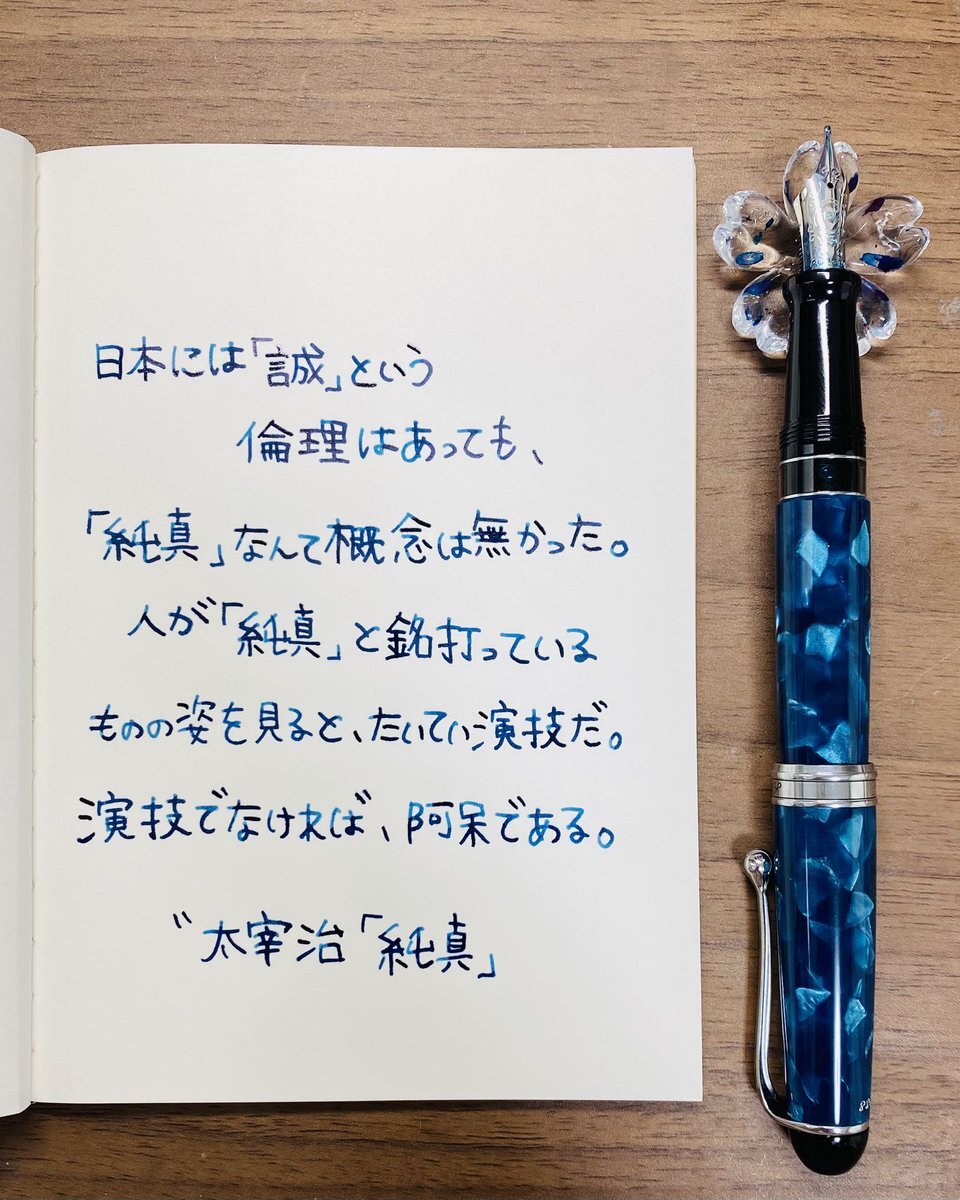 日本には「誠」という
倫理はあっても、
「純真」なんて概念は無かった。
人が「純真」と銘打っている
ものの姿を見ると、たいてい演技だ。
演技でなければ、阿呆である。
〃太宰治「純真」